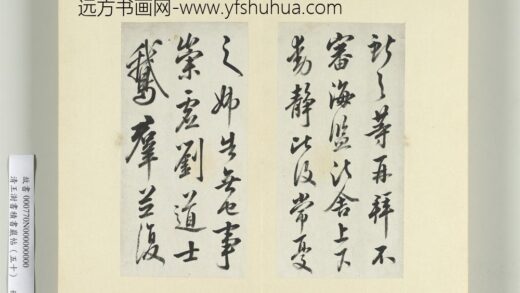 远方书画网-www.yfshuhua.com
獻之等再拜不
審海鹽諸舍上下
動靜比復常憂
之姊告無他事
崇虛劉道士
鵝羣並復
故書000770N000000000
清王澍書積書巖帖（五十）